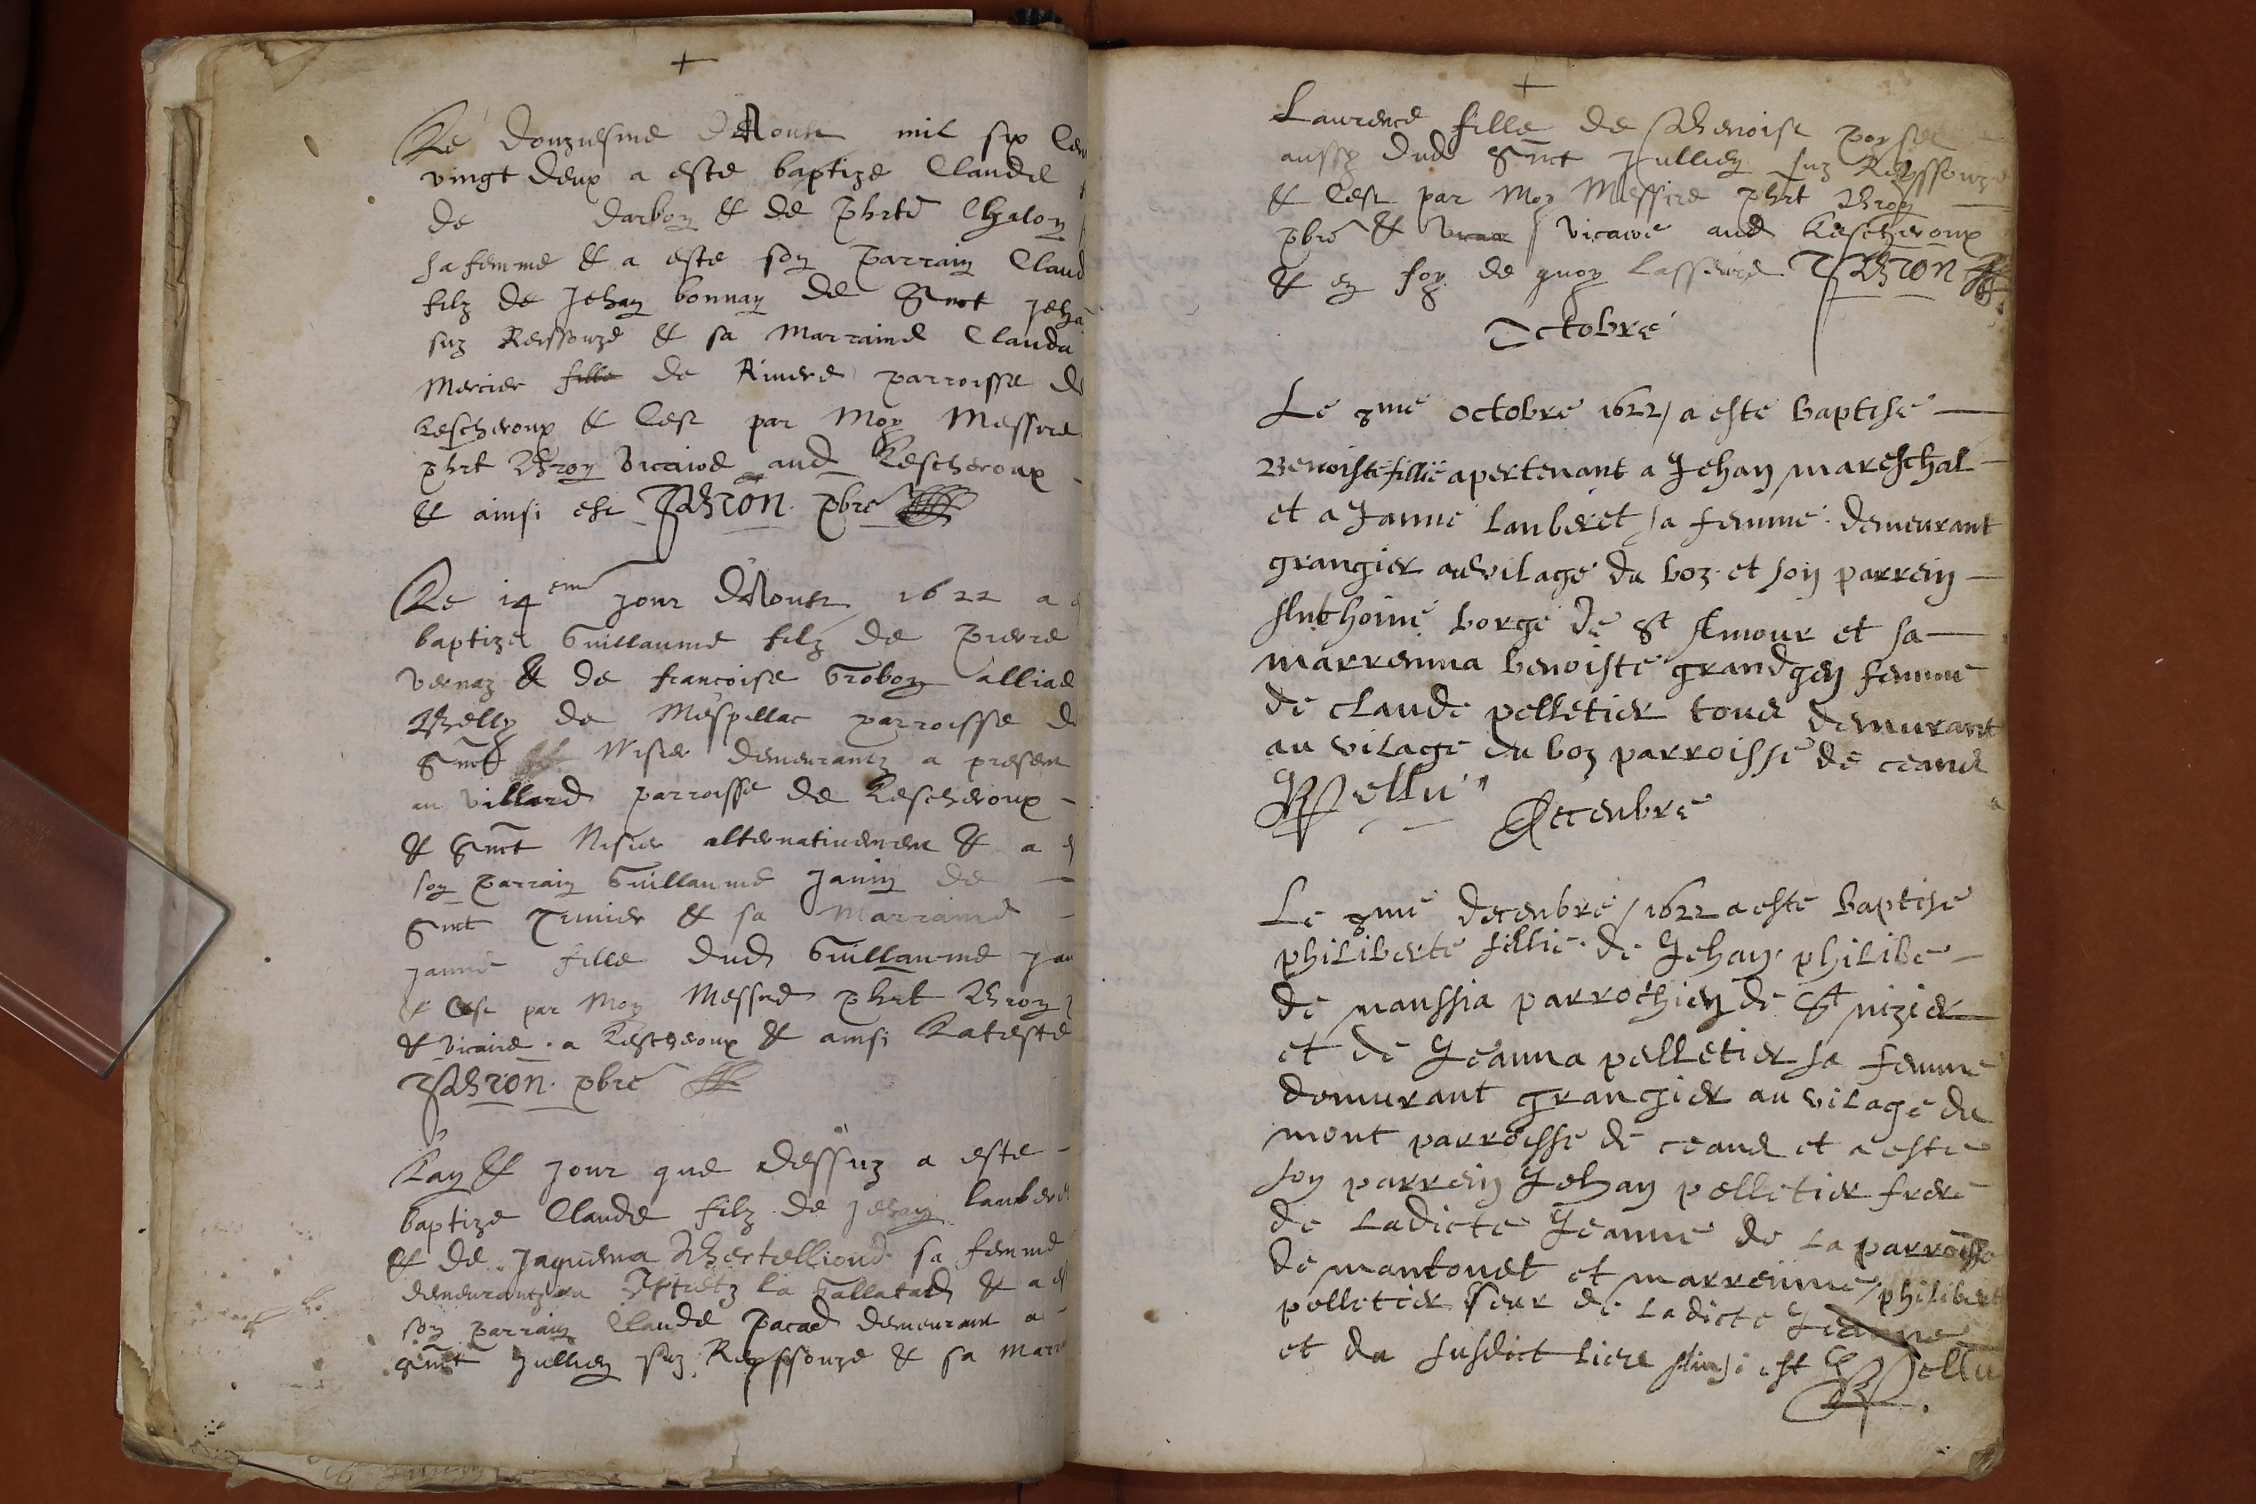 Le douzuesme d'Aoust mil six Cen
vingt deux a este baptize Claude
de darbon & de phrte Chalon
sa femme & a este son parrain Claud
filz de Jehan bonnay de Sainct Jeha
suz Reissouze & sa Marraine Clauda
Mercier fille de Riviere parroisse de
Lescheroux & Cest par Moy Messire
phrt Bron vicaire aud Lescheroux
& ainsi est PBron. pbre
Le 14eme jour d'Aoust 1622 a e
baptize Guillaume filz de pierre
vernaz & de francoise Grobon alliad
Velly de Mespillac parroisse de
Sainct Nisier demeurantz a present
au villard parroisse de Lescheroux
& Sainct Nisier alternativement & a e
son parrain Guillaume Janin de
Sainct Trivier & sa Marraine
janne fille dud Guillaume Jan
& Cest par Moy Messire phrt Bron
& vicaire a Lescheroux & ainsi Lateste
PBron. pbre
Lan & jour que dessuz a este
baptize Claude filz de Jehan lauber
& de Jaquema Bertelliond sa femme
demeurantz au la Gallatad & a e
son parrain Claude Pacad demeurant a
Sainct Jullien suz Reyssouze & sa Marr
Laurence fille de Benoist
aussy dud Sainct Jullien suz Reyssouze
& Cest par Moy Messire phrt Bron
pbre & vicaire aud Lescheroux
& en foy de quoy Lasseure PBron
Octobre
Le 8me octobre 1622 / a este Baptise
Benoiste fillie apertenant a Jehan mareschal
et a Janne lauberet sa femme demeurant
grangier au vilage du boz et son parrein
Anthoine borge de St Amour et sa
marrenna benoiste grandgen femme
de claude pelletier tous demurant
au vilage du boz parroisse de ceans
Pellu
Decenbre
Le 8me decenbre / 1622 a este Baptise
philiberte fillie de Jehan philibe
de maussia parrochien de St nizier
et de Jeanna pelletier sa femme
demurant grangier au vilage du
mont parroisse de ceans et a este
son parrein Jehan pelletier frere
de ladicte Jeanne de la parroisse
de mantonet et marrenne / philibert
pelletier seur de ladicte Jeanne
et du susdict liere Ainsi est Pellu